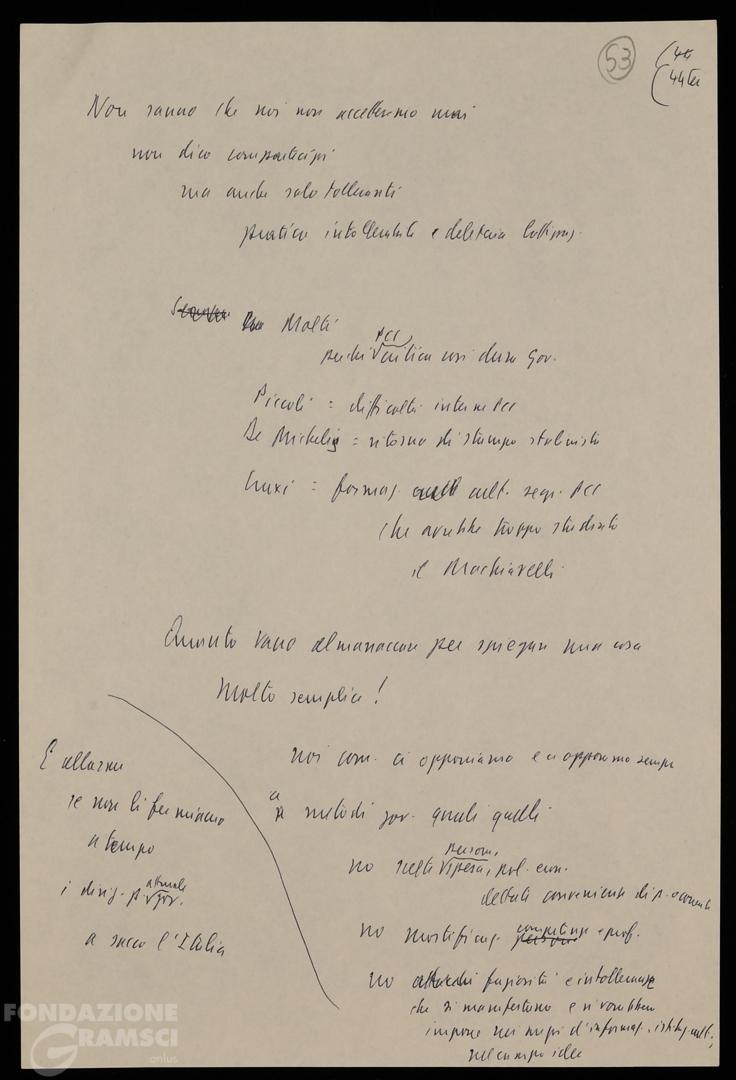 53
44
44 ter
Non sanno che noi non accetteremo mai
non dico compartecipi
ma anche solo tolleranti
pratica intollerabile e deleteria lottizzaz.
Molti
perché PCI critica così duro Gov.
Piccoli = difficoltà interne PCI
De Michelis = ritorno di stampo stalinista
Craxi = formaz. cult. segr. PCI
che avrebbe troppo studiato
il Machiavelli
Quanto vano almanaccare per spiegare una cosa
molto semplice!
noi com. ci opponiamo e ci opporremo sempre
a metodi gov. quali quelli
no scelte persone, spesa, pol. econ.
dettate convenienze di p. o correnti
no mortificaz. competenze e prof.
no faziosità e intolleranze
che si manifestano e si vorrebbero
imporre nei mezzi d'informaz., istituz. cult.,
nel campo idee
E allarme
se non li fermiamo
a tempo
i dirig. p. attuale gov.
a sacco l'Italia
FONDAZIONE
GRAMSCI
onlus